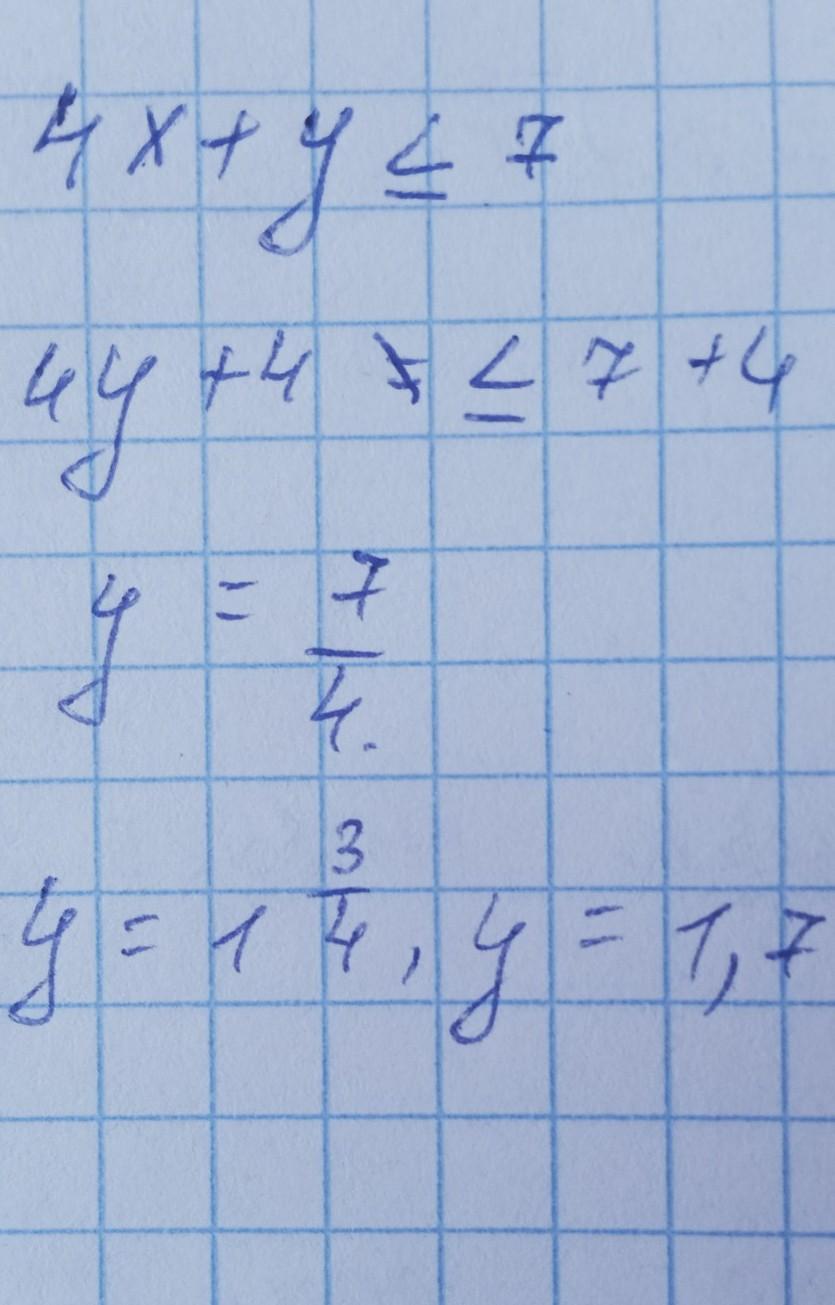 4x + y ≤ 7
4y + 4 ≤ 7 + 4
y = 7/4.
y = 1 3/4, y = 1,7